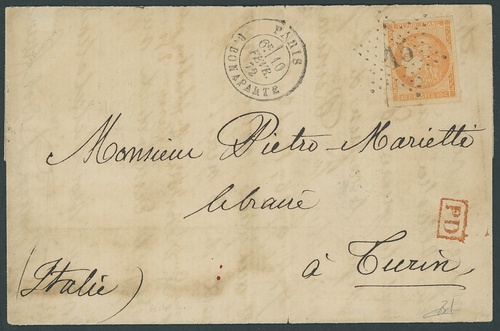 PARIS
R. BONAPARTE
6E 10
FEVR.
72
19
Monsieur Pietro-Marietti
libraire
P.D.
à Turin
(Italie)